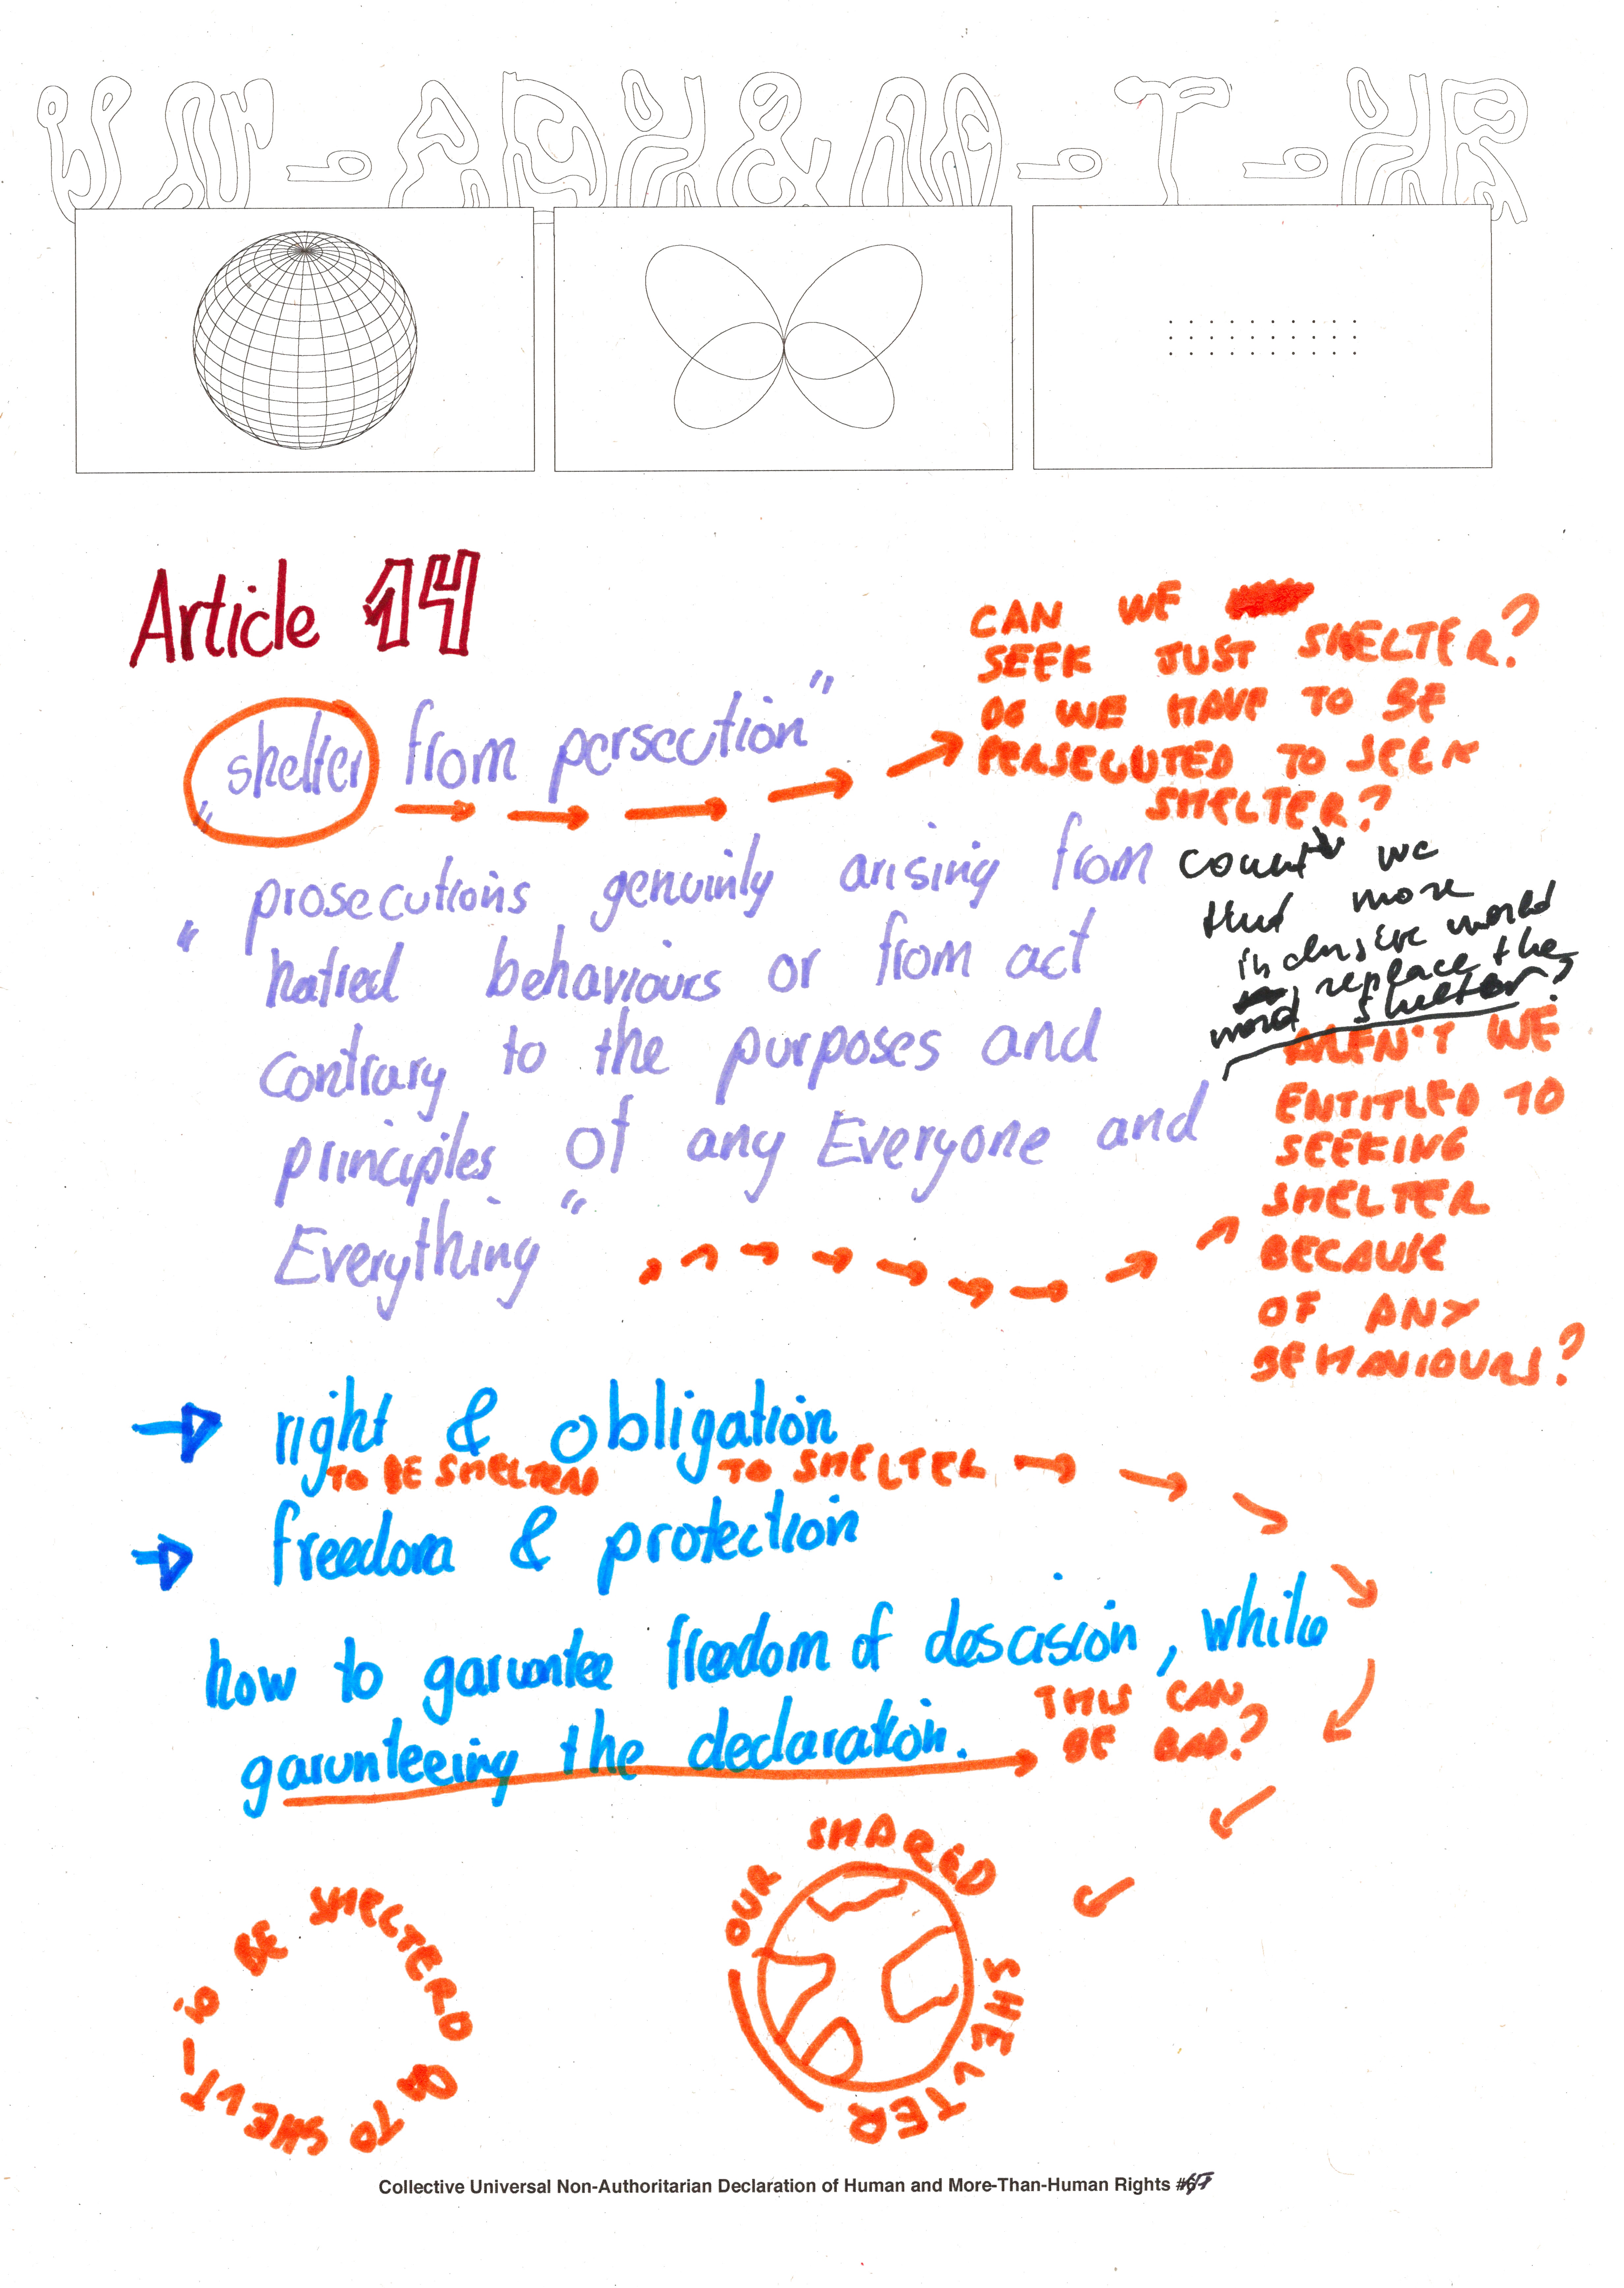 UN-ADH&M-T-HR
Article 14
CAN WE
SEEK JUST SHELTER?
DO WE HAVE TO BE
PERSECUTED TO SEEK
SHELTER?
"shelter from persecution"
"prosecutions genuinly arising from
hatred behaviours or from act
contrary to the purposes and
principles of any Everyone and
Everything"
we
more
inclusive world
replace the
word shelter?
AREN'T WE
ENTITLED TO
SEEKING
SHELTER
BECAUSE
OF ANY
BEHAVIOURS?
right & obligation
TO BE SHELTERD TO SHELTER
freedom & protection
how to garuntee freedom of descision, while
garunteeing the declaration.
THIS CAN
BE BAD?
TO BE SHELTERD & TO SHELT-
OUR SHARED SHELTER
Collective Universal Non-Authoritarian Declaration of Human and More-Than-Human Rights